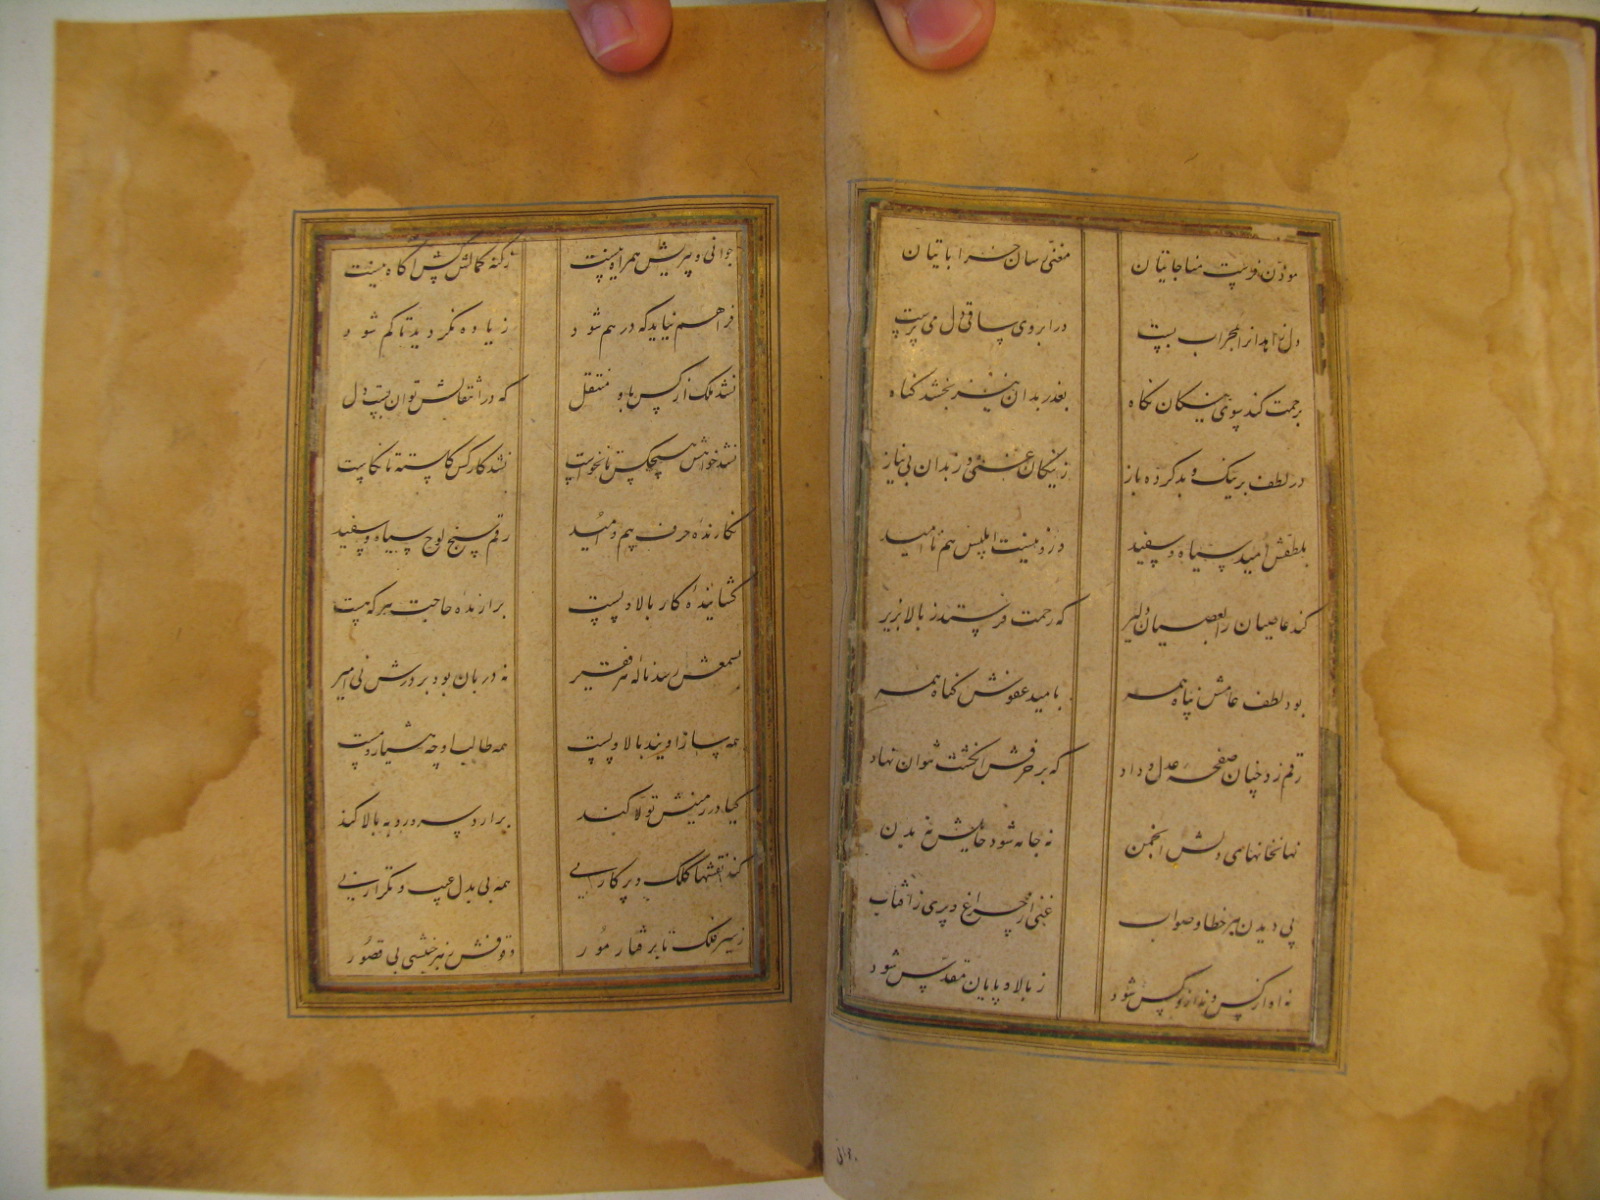 موذن فرست مناجاتیان مغنی رسان خراباتیان
دل زاهدانرا بمحراب بست در ابروی ساقی دل می پرست
برحمت کند سوی نیکان نگاه بعذر بدان نیز بخشد گناه
در لطف بر نیک و بد کرده باز ز نیکان غنی وز بدان بی نیاز
بلطفش امید سیاه و سفید درو نیست ابلیس هم ناامید
کند عاصیان را بعصیان دلیر که رحمت فرستد ز بالا بزیر
بود لطف عامش پناه همه بامید عفوش گناه همه
رقم زد چنان صفحه عدل و داد که بر حرفش انگشت نتوان نهاد
نهانخانهای دلش انجمن نه جامه شود حایلش نی بدن
پی دیدن هر خطا و صواب غنی از چراغ و بری ز آفتاب
نه او از کس و نه ازو کس شود ز بالا و پایان مقدس شود
جوانی و پیریش همراه نیست ز کنه کمالش کس آگاه نیست
فراهم نیاید که درهم شود زیاده نگردید تا کم شود
نشد ملک از کس باو منتقل که در انتقالش توان بست دل
نشد خواهش هیچکس تا نخواست نشد کار کس کاسته تا نکاست
نگارنده حرف بیم و امید رقم سنج لوح سیاه و سفید
گشاینده کار بالا و پست برارنده حاجت هر که هست
بسمعش رسد ناله هر فقیر نه دربان بود بر درش نی امیر
همه پا ز اویند بالا و پست همه طالب او چه هشیار و مست
گیا در زمینش تولا کند برارد سر و رو به بالا کند
کند نقشها کلک پرکاریی همه بی بدل عیب و تکراریی
ز سیر فلک تا برفتار مور وقوفش بهر جنبشی بی قصور